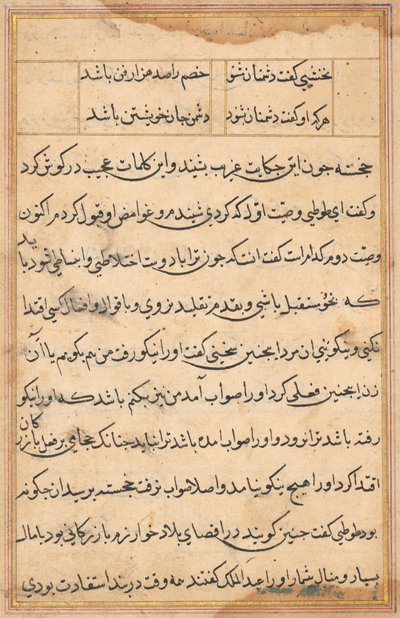 نخشبی گفت دشمنان نشنود خصم را صد هزار فن باشد
هرکه او گفت دشمنان شنود دشمن جان خویشتن باشد
خجسته چون این حکایت غریب بشنید و این کلمات عجیب در گوش کرد
و گفت ای طوطی وصیت اول که کردی شنیدم و غوامض او قبول کردم اکنون
وصیت دوم کدام است گفت آنست که چون ترا با دوست اختلاطی و انبساطی شود باید
که بخود مستقبل باشی و بقدم تقلید نروی و باقوال و افعال کسی اقتدا
نکنی و نیکو بینی آن مرد اینچنین سخنی گفت او را نیکو رفت من هم بگویم یا آن
زن اینچنین فعلی کرد او را صواب آمد من نیز بکنم باشد که او را نیکو
رفته باشد ترا نرود و او را صواب آمده باشد ترا نیاید چنانک حجامی بر فعل بازرگان
اقتدا کرد او را هیچ نیکو نیامد و اصلا صواب نرفت خجسته پرسید آن چگونه
بود طوطی گفت چنین گویند در اقصای بلاد خوارزم بازرگانی بود با مال
بسیار و منال بیشمار او را عبدالملک گفتند همه وقت در بند استفادت بودی